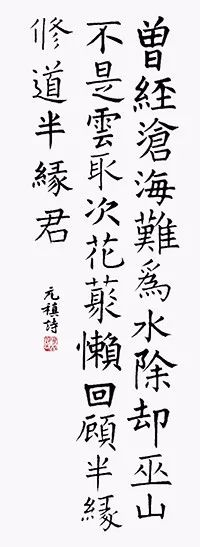 曾經滄海難為水除却巫山
不是雲取次花叢懶回顧半緣
修道半緣君
元稹詩